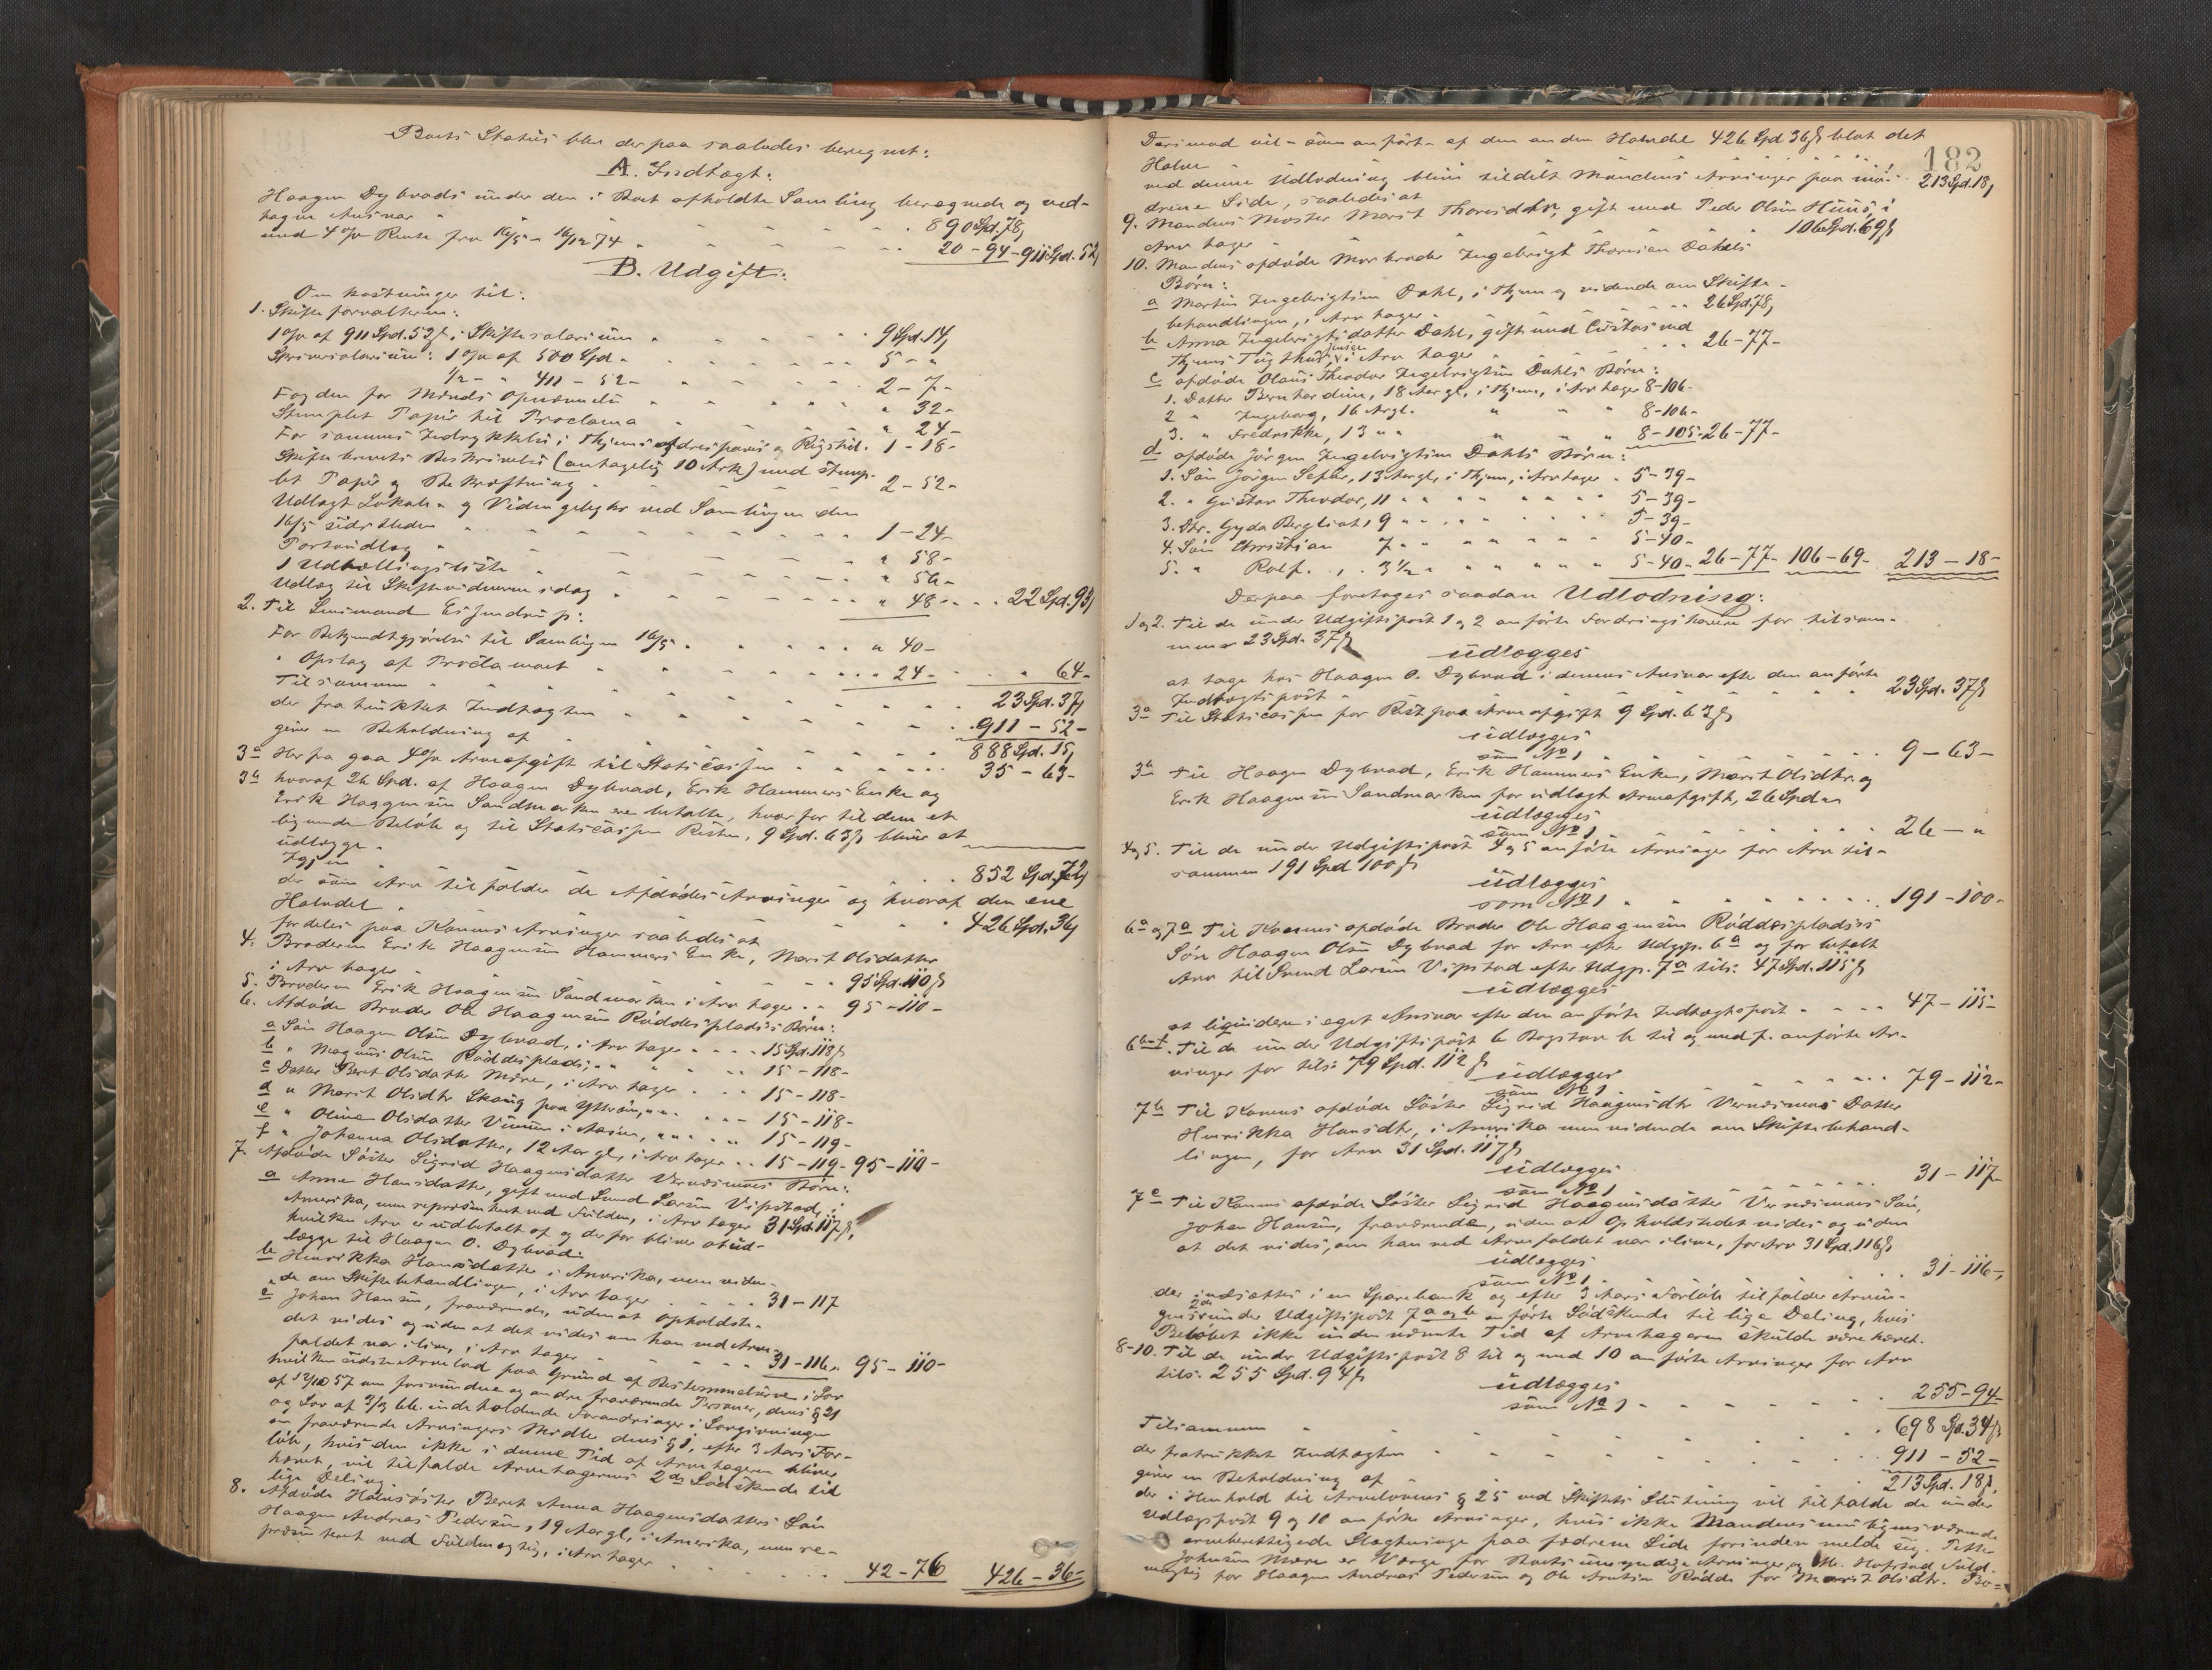 Boets Status blev derpaa saaledes beregnet:
A. Indtægt:
Haagen Dybvads under den i Boet afholdte Samling beregnede og ved-
tagne Ansvar 890 Spd. 78ß
med 4 % Rente fra 16/5 - 16/12 74 20 - 94 - 911 Spd. 52ß
B. Udgift:
Omkostninger til:
1. Skifteforvalteren:
1 % af 911 Spd. 52ß i Skiftesalarium 9 Spd. 14ß
Skriversalarium: 1 % af 500 Spd. 5 - "
1/2 - " 411 - 52 - 2 - 7 -
Fogden for Mænds Opnævnelse " 32 -
Stemplet Papir til Proclama " 24 -
For sammes Indrykkelse i Thjems Adresseavis og Rigstid. 1 - 18 -
Skiftebrevets Beskrivelse (antagelig 10 Ark) med stemp-
let Papir og Bekræftning 2 - 52 -
Udlagt Lokale- og Vidnegebyhr ved Samlingen den
16/5 sidstleden 1 - 24 -
Portoudlæg " 58 -
1 Udkallingsliste " 56 -
Udlæg til Skiftevidnerne idag " 48 - 22 Spd. 93ß
2. Til Lensmand Esjendrup:
For Bekjendtgjørelse til Samlingen 16/5 " 40 -
" Opslag af Proclamaet " 24 - " 64 -
Tilsammen 23 Spd. 37ß
der fratrukket Indtægten 911 - 52 -
giver en Beholdning af 888 Spd. 15ß
3a Herfra gaa 4 % Arveafgift til Statscassen 35 - 63 -
3b hvoraf 26 Spd. af Haagen Dybvad, Erik Hammers Enke og
Erik Haagensen Sandmarken ere betalte, hvorfor til dem et
lignende Beløb og til Statscassen Resten, 9 Spd. 63ß bliver at
udlægge.
Igjen 852 Spd. 72ß
der som Arv tilfalder de Afdødes Arvinger og hvoraf den ene
Halvdel 426 Spd. 36ß
fordeles paa Konens Arvinger saaledes at
4. Broderen Erik Haagensen Hammers Enke, Marit Olsdatter
i Arv tager 95 Spd. 110ß
5. Broderen Erik Haagensen Sandmarken i Arv tager 95 - 110 -
6. Afdøde Broder Ole Haagensen Røddespladsis Børn:
a Søn Haagen Olsen Dybvad, i Arv tager 15 Spd. 118ß
b " Magnus Olsen Røddesplads, " " 15 - 118 -
c Datter Beret Olsdatter Mære, i Arv tager 15 - 118 -
d " Marit Olsdtr Skaug paa Ytterøen, " " 15 - 118 -
e " Oline Olsdatter Vinum i Aasen, " " 15 - 119 -
f " Johanna Olsdatter, 12 Aar gl., i Arv tager 15 - 119 - 95 - 110 -
7. Afdøde Søster Sigrid Haagensdatter Vernæsmoes Børn:
a Anne Hansdatter, gift med Svend Larsen Vipstad, i
Amerika, men repræsenteret ved Fuldm., i Arv tager 31 Spd. 117ß,
hvilken Arv er udbetalt af og derfor bliver at ud-
lægge til Haagen O. Dybvad.
b Henrikka Hansdatter i Amerika, men viden-
de om Skiftebehandlingen, i Arv tager 31 - 117
c Johan Hansen, fraværende, uden at Opholdste-
det vides og uden at det vides om han ved Arve-
faldet var ilive, i Arv tager 31 - 116 - 95 - 110 -
hvilken sidste Arvelod paa Grund af Bestemmelserne i Lov
af 12/10 57 om forsvundne og andre fraværende Personer, dens § 21
og Lov af 3/3 66 indeholdende Forandringer i Lovgivningen
om fraværende Arvingers Midler dens § 1, efter 3 Aars For-
løb, hvis den ikke i denne Tid af Arvetageren bliver
hævet, vil tilfalde Arvetagerens 2de Sødskende til
lige Deling.
8. Afdøde Halvsøster Beret Anna Haagensdatters Søn
Haagen Andreas Pedersen, 19 Aar gl., i Amerika, men re-
præsenteret ved Fuldmægtig, i Arv tager 42 - 76 426 - 36 -
182
Derimod vil - som anført - af den anden Halvdel 426 Spd 36ß blot det
Halve 213 Spd. 18ß
ved denne Udlodning blive tildelt Mandens Arvinger paa mø-
drene Side, saaledes at
9. Mandens Moster Marit Thoresdtr, gift med Peder Olsen Huus, i
Arv tager 106 Spd. 69ß
10. Mandens afdøde Morbroder Ingebrigt Thoresen Dahls
Børn:
a Martin Ingebrigtsen Dahl, i Thjem og vidende om Skifte-
behandlingen, i Arv tager 26 Spd. 78ß
b Anna Ingebrigtsdatter Dahl, gift med Custos ved
Thjems Tugthus Jensen, i Arv tager 26 - 77 -
c afdøde Olaus Theodor Ingebrigtsen Dahls Børn:
1. Datter Bernhardine, 18 Aar gl., i Thjem, i Arv tager 8 - 106 -
2 " Ingeborg, 16 Ar gl. " " " 8 - 106 -
3. " Fredrikke, 13 " " " " " 8 - 105 - 26 - 77 -
d afdøde Jørgen Ingebrigtsen Dahls Børn:
1. Søn Jørgen Sefær, 13 Aar gl., i Thjem, i Arv tager 5 - 39 -
2. " Gustav Theodor, 11 " " " " 5 - 39 -
3. Dtr. Gyda Bergliot, 9 " " " " 5 - 39 -
4. Søn Christian 7 " " " " 5 - 40 -
5. " Rolf. " 3 1/2 " " " " 5 - 40 - 26 - 77 - 106 - 69 - 213 - 18 -
Derpaa foretages saadan Udlodning:
1 og 2. Til de under Udgiftspost 1 og 2 anførte Fordringshavere for tilsam-
men 23 Spd. 37ß
udlægges
at tage hos Haagen O. Dybvad i dennes Ansvar efter den anførte
Indtægtspost 23 Spd. 37ß
3a Til Statscassen for Rest paa Arveafgift 9 Spd. 63ß
udlægges
som No 1 9 - 63 -
3b Til Haagen Dybvad, Erik Hammers Enke, Marit Olsdtr. og
Erik Haagensen Sandmarken for udlagt Arveafgift, 26 Spd "
udlægges
som No 1 26 - "
4 og 5. Til de under Udgiftspost 4 og 5 anførte Arvinger for Arv til-
sammen 191 Spd 100ß
udlægges
som No 1 191 - 100 -
6a og 7a Til Konens afdøde Broder Ole Haagensen Røddespladsis
Søn Haagen Olsen Dybvad for Arv efter Udgp. 6a og for betalt
Arv til Svend Larsen Vipstad efter Udgp. 7a tils: 47 Spd. 115ß
udlægges
at liquidere i eget Ansvar efter den anførte Indtægtspost 47 - 115 -
6b-f. Til de under Udgiftspost 6 Bogstav b til og med f. anførte Ar-
vinger for tils: 79 Spd. 112ß
udlægges
som No 1 79 - 112 -
7b Til Konens afdøde Søster Sigrid Haagensdtr Vernæsmoes Datter
Henrikka Hansdtr, i Amerika men vidende om Skiftebehand-
lingen, for Arv 31 Spd. 117ß
udlægges
som No 1 31 - 117 -
7c Til Konens afdøde Søster Sigrid Haagensdatter Vernæsmoes Søn,
Johan Hansen, fraværende, uden at Opholdstedet vides og uden
at det vides, om han ved Arvefaldet var ilive, for Arv 31 Spd. 116ß
udlægges
som No 1 31 - 116 -,
der indsættes i en Sparebank og efter 3 Aars Forløb tilfalder Arvin-
gens under Udgiftspost 7 a og b anførte 2de Sødskende til lige Deling, hvis
Beløbet ikke inden nævnte Tid af Arvetageren skulde være hævet.
8-10. Til de under Udgiftspost 8 til og med 10 anførte Arvinger for Arv
tils. 255 Spd. 94ß
udlægges
som No 1 255 - 94
Tilsammen 698 Spd. 34ß
der fratrukket Indtægten 911 - 52 -
giver en Beholdning af 213 Spd. 18ß,
der i Henhold til Arvelovens § 25 ved Skiftets Slutning vil tilfalde de under
Udlægspost 9 og 10 anførte Arvinger, hvis ikke Mandens muligens værende
arveberettigede Slægtninge paa fædrene Side forinden melde sig. Peter
Johnsen Mære er Værge for Boets umyndige Arvinger, og Hofstad Fuld-
mægtig for Haagen Andreas Pedersen og Ole Arntsen Rødde for Marit Olsdtr. Bo=